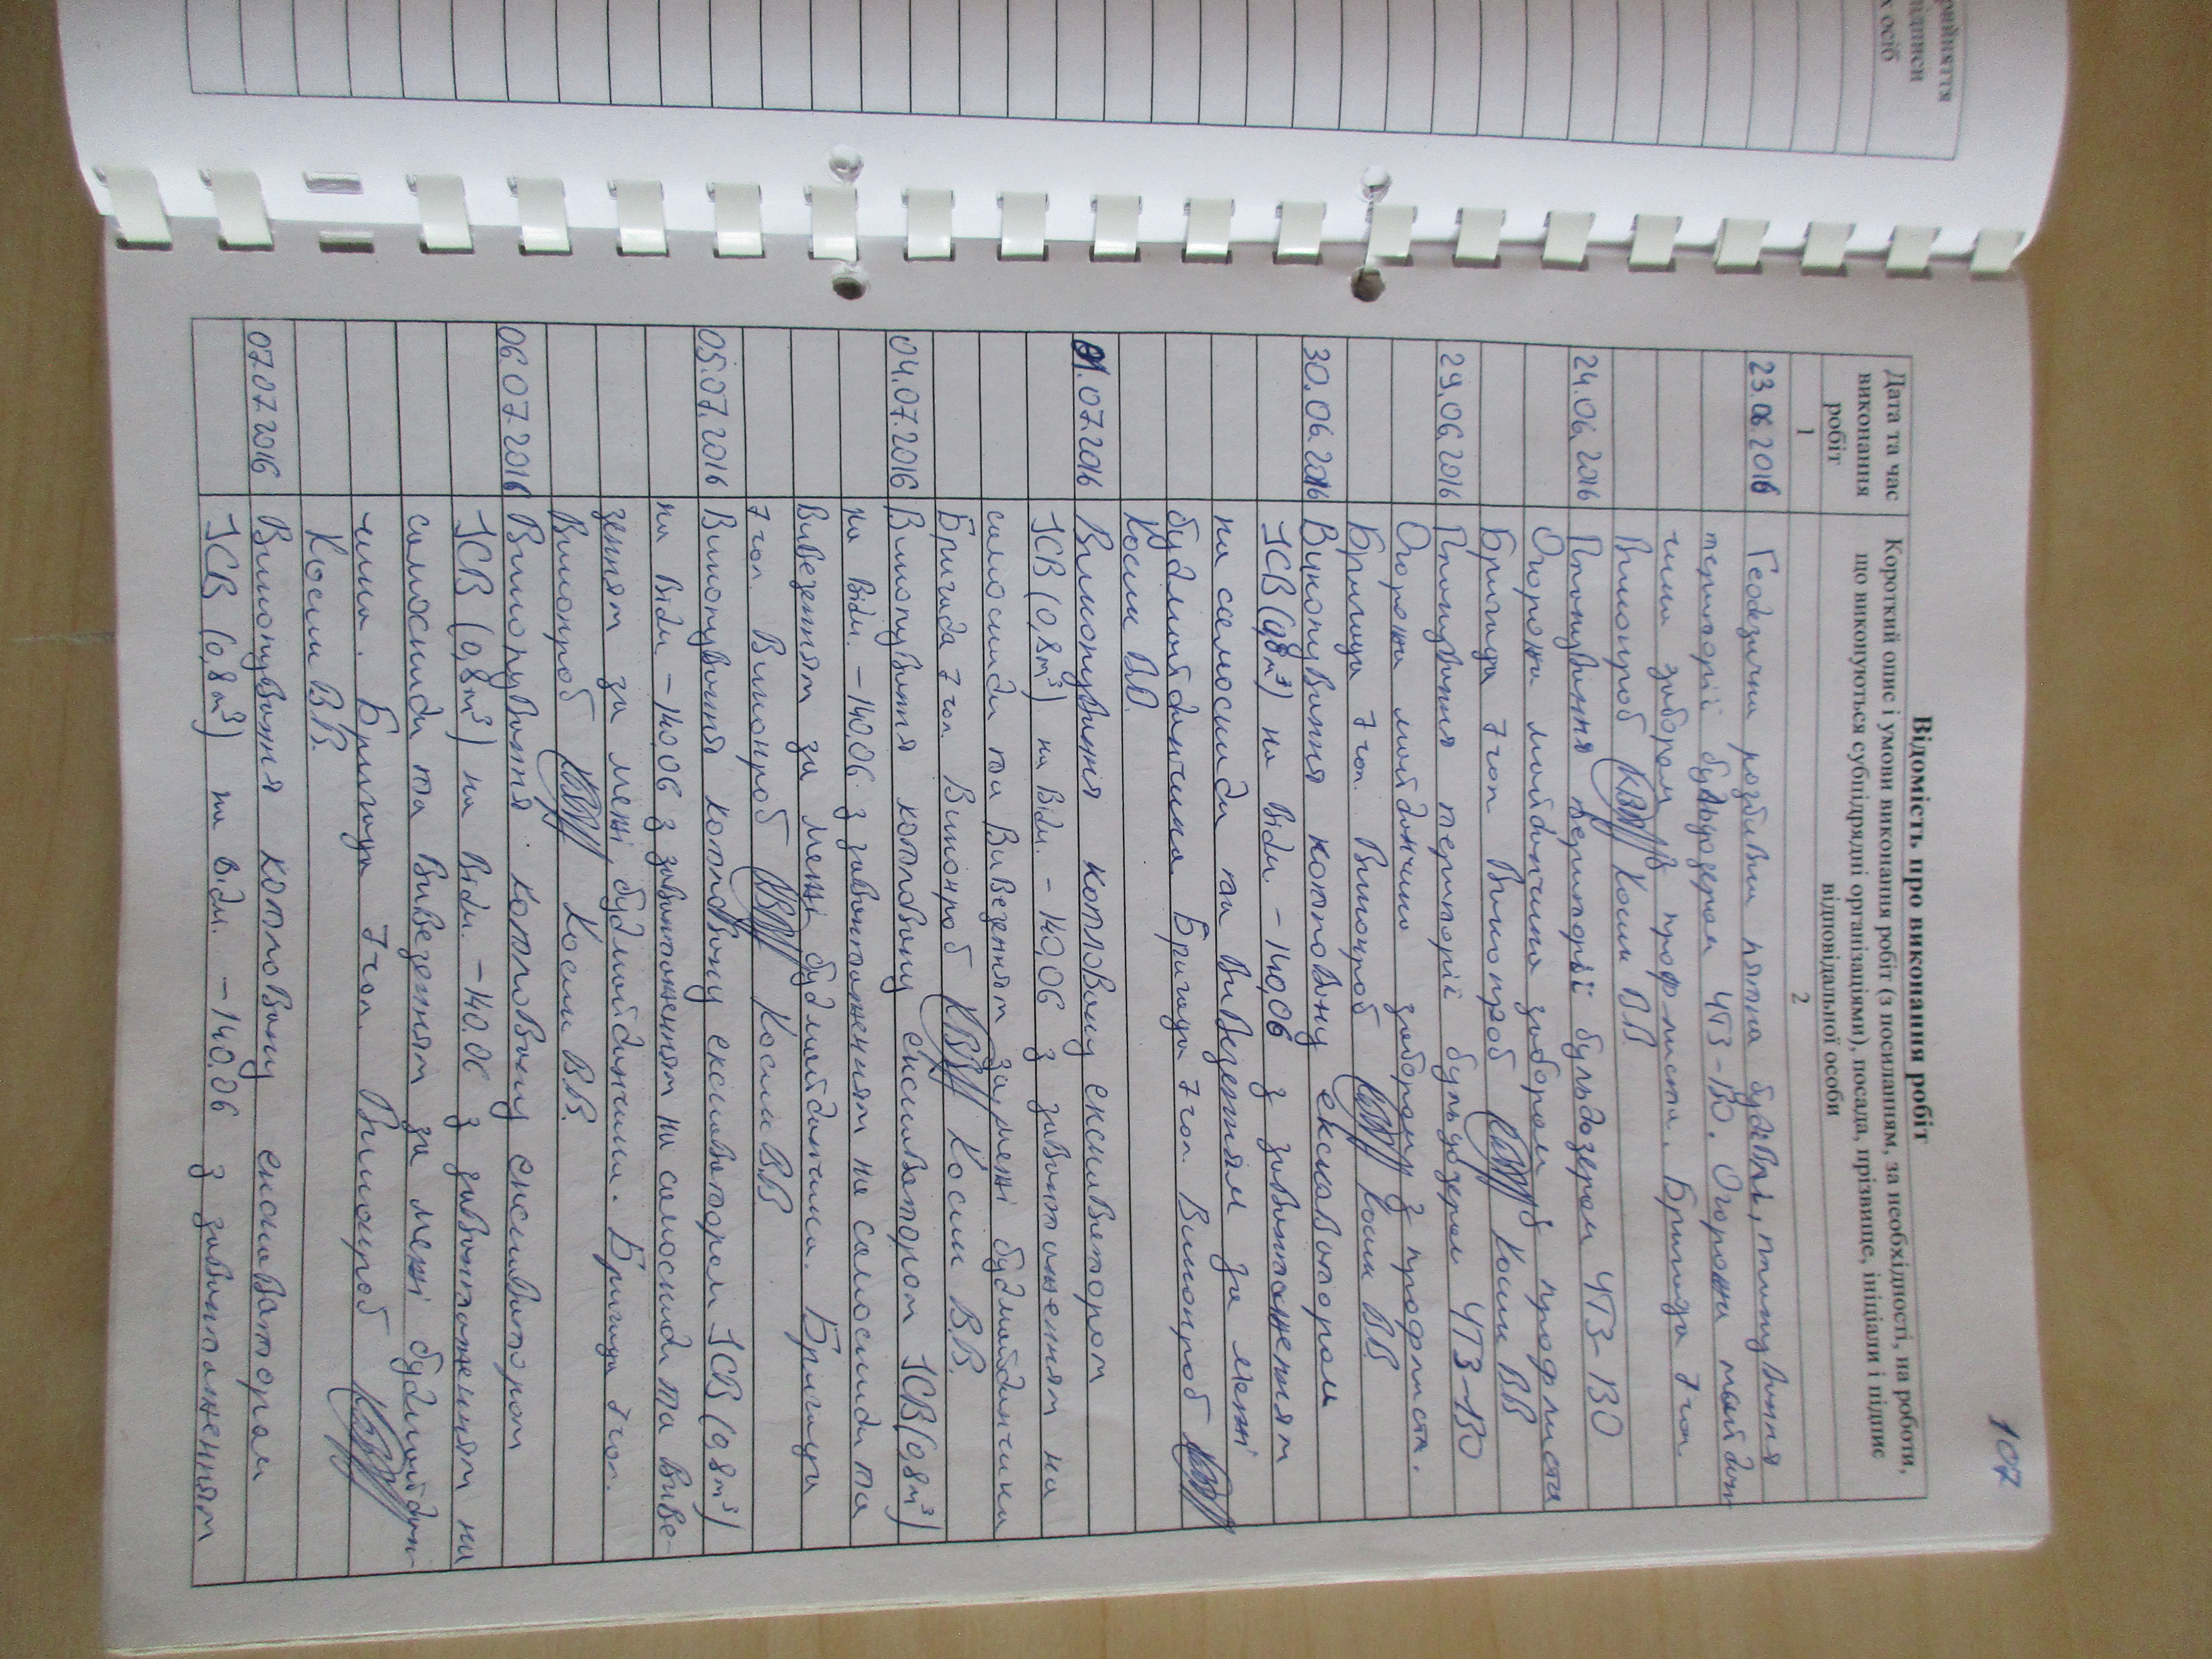 рийняття
підписи
х осіб
107
Відомість про виконання робіт
Дата та час виконання робіт
Короткий опис і умови виконання робіт (з посиланням, за необхідності, на роботи, що виконуються субпідрядні організаціями), посада, прізвище, ініціали і підпис відповідальної особи
1 2
23.06.2016 Геодезична розбивка пятна будівлі, планування
території бульдозером ЧТЗ-130. Огорожа майдан-
чика забором з профлиста. Бригада 7 чол.
Виконроб Косик В.В
24.06.2016 Планування території бульдозером ЧТЗ-130
Огорожа майданчика забором з профлиста
Бригада 7 чол Виконроб Косик ВВ
29.06.2016 Планування території бульдозером ЧТЗ-130
Огорожа майданчика забором з профлиста.
Бригада 7 чол. Виконроб Косик ВВ.
30.06.2016 Виконування котловану екскаватором
JCB (0,8м³) на відм. -140,06 з завантаженням
на самоскиди та вивезенням за межі
будмайданчика Бригада 7 чол. Виконроб
Косик В.В.
01.07.2016 Викопування котловану екскаватором
JCB (0,8м³) на відм. -140,06 з завантаженням на
самоскиди та вивезенням за межі будмайданчика
Бригада 7 чол. Виконроб Косик В.В.
04.07.2016 Викопування котловану екскаватором JCB (0,8м³)
на відм. -140.06 з завантаженням на самоскиди та
вивезенням за межі будмайданчика. Бригада
7 чол. Виконроб Косик В.В
05.07.2016 Викопування котловану екскаватором JCB (0,8м³)
на відм -140,06 з завантаженням на самоскиди та вивe-
зенням за межі будмайданчика. Бригада 7 чол.
Виконроб Косик В.В.
06.07.2016 Викопування котловану екскаватором
JCB (0,8м³) на відм. -140.06 з завантаженням на
самоскиди та вивезенням за межі будмайдан-
чика. Бригада 7 чол. Виконроб
Косик В.В.
07.07.2016 Викопування котловану екскаватором
JCB (0,8м³) на відм. -140.06 з завантаженням